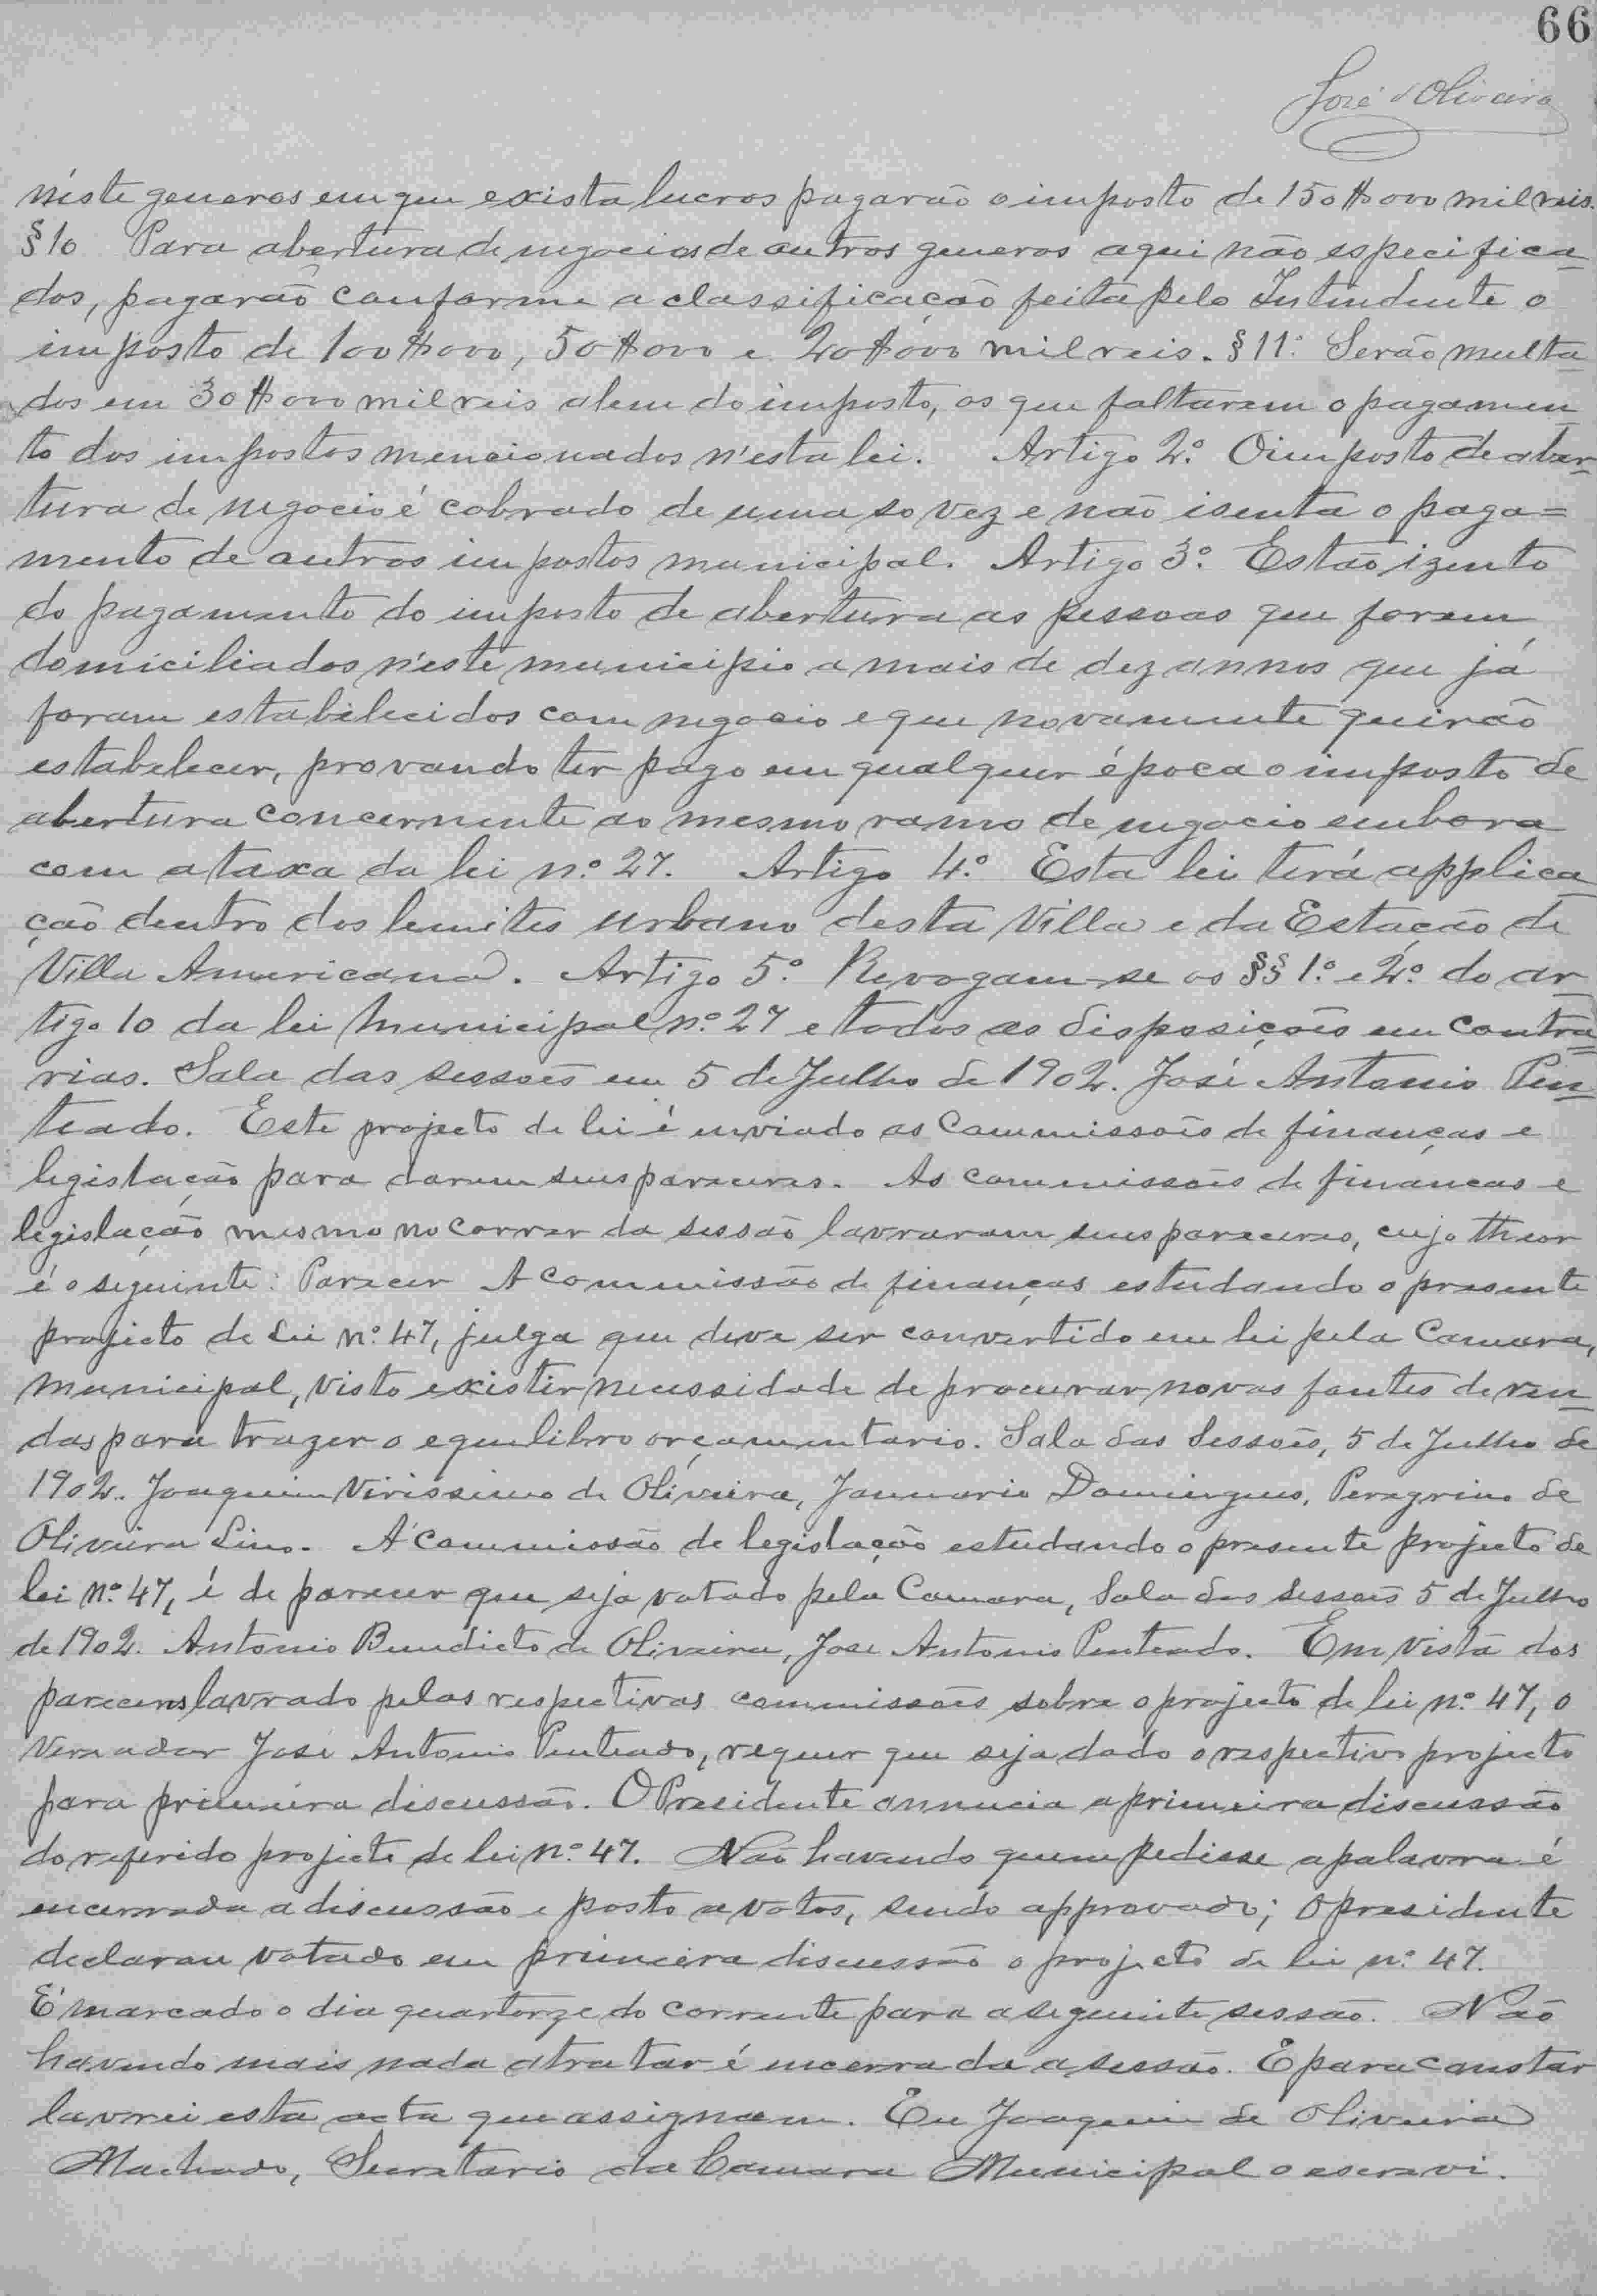 66
José d'Oliveira
n'este generos em que exista lucros pagarão o imposto de 150$000 mil reis.
§ 10 Para abertura de negocios de outros generos aqui não especifica-
dos, pagarão conforme a classificação feita pelo Intendente o
imposto de 100$000, 50$000 e 20$000 mil reis. § 11º Serão multa-
dos em 30$000 mil reis alem do imposto, os que faltarem o pagamen-
to dos impostos mencionados n'esta lei. Artigo 2º O imposto de aber-
tura de negocio é cobrado de uma so vez e não isenta o paga=
mento de outros impostos municipal. Artigo 3º Estão izento
do pagamento do imposto de abertura as pessoas que forem
domiciliados n'este municipio a mais de dez annos que já
foram estabelecidos com negocio e que novamente queirão
estabelecer, provando ter pago em qualquer época o imposto de
abertura concernente ao mesmo ramo de negocio embora
com a taxa da lei nº 27. Artigo 4º Esta lei terá applica-
ção dentro dos lemites urbano desta Villa e da Estação de
Villa Americana. Artigo 5º Revogam-se os §§ 1º e 2º do ar-
tigo 10 da lei Municipal nº 27 e todos as disposições em contra=
rias. Sala das sessões em 5 de Julho de 1902. José Antonio Pen=
teado. Este projecto de lei é enviado as Commissões de finanças e
legislação para darem seus pareceres. As commissões de finanças e
legislação mesmo no correr da sessão lavraram seus pareceres, cujo theor
é o seguinte: Parecer A commissão de finanças estudando o presente
projecto de Lei nº 47, julga que deve ser convertido em lei pela Camara,
Municipal, visto existir necessidade de procurar novas fontes de ren=
das para trazer o equilibro orçamentario. Sala das Sessões, 5 de Julho de
1902. Joaquim Virissimo de Oliveira, Januario Domingues, Peregrino de
Oliveira Lino. A' Commissão de legislação estudando o presente projecto de
lei nº 47, é de parecer que seja votado pela Camara, Sala das Sessões 5 de Julho
de 1902. Antonio Benedicto de Oliveira, José Antonio Penteado. Em vista dos
pareceres lavrado pelas respectivas commissões sobre o projecto de lei nº 47, o
Vereador José Antonio Penteado, requer que seja dado o respectivo projecto
para primeira discussão. O Presidente annucia a primeira discussão
do referido projecto de lei nº 47. Não havendo quem pedisse a palavra é
encerrada a discussão e posto a votos, sendo approvado; O presidente
declarou votado em primeira discussão o projecto de lei nº 47.
E' marcado o dia quartorze do corrente para a seguinte sessão. Não
havendo mais nada atratar é encerrada a sessão. E para constar
lavrei esta acta que assignam. Eu Joaquim de Oliveira
Machado, Secretario da Camara Municipal o escrevi.